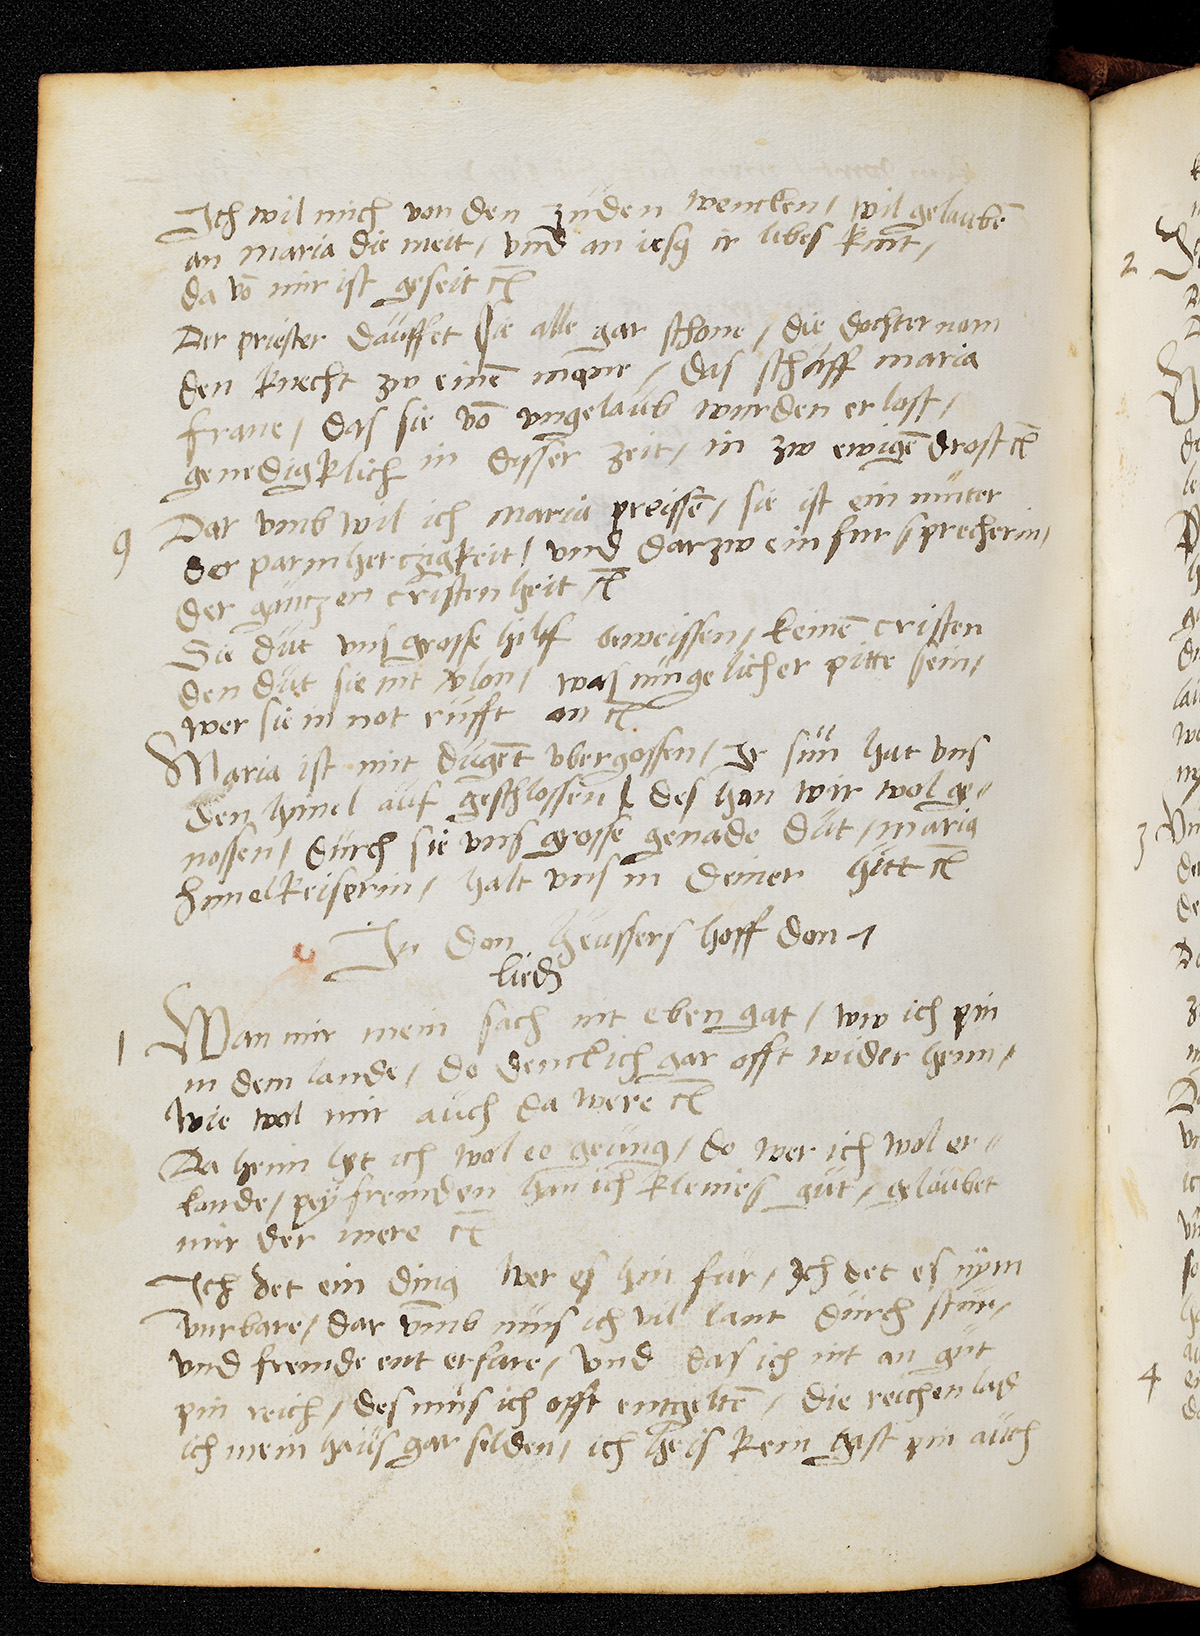 Ich wil mich von den Juden wencken / wil gelaubē
an maria die meit / vnd an iesꝰ ir libes kint /
da vō mir ist geseit
Der priester dauffet sie alle gar schone / die dochter nam
den knecht zw einē mane / das schuff maria
frane / das sie vō vngelaub wurden erlost /
genedigklich in disser zeit / in zw ewigē drost
9 Dar vmb wil ich maria preissē / sie ist ein muter
der parmherczigkeit / vnd darzw ein fursprecherin /
der gantzen cristenheit
Sie dut vns grosse hilff beweissen / keinē cristen
den dut sie nit vlon / was mugelicher pitte sein /
wer sie in not rufft an
Maria ist mit dugēt vbergossen / Ir sun hat vns
den himel auf geschlossen / des han wir wol ge=
nossen / durch sie vns grosse genade dut / maria
himelkeiserin / halt vns in deiner hutt
In don heussers hoff don 1
lied
1 Wan mir mein sach nit eben gat / ww ich pin
in dem lande / do denck ich gar offt wider heim /
wie wol mir auch da were
Da heim het ich wol ee genug / do wer ich wol er=
kande / pey fremden han ich kleines gut / gelaubet
mir der mere
Ich det ein ding wer es hin fur / Ich det es nym
vurbare / dar vmb mus ich vil lant durch
vnd fremde ent erfare / vnd das ich nit an gut
pin reich / des mus ich offt entgeltē / die reichen lad
ich mein haus gar selden / ich heis kein gast pin auch
2
3
4